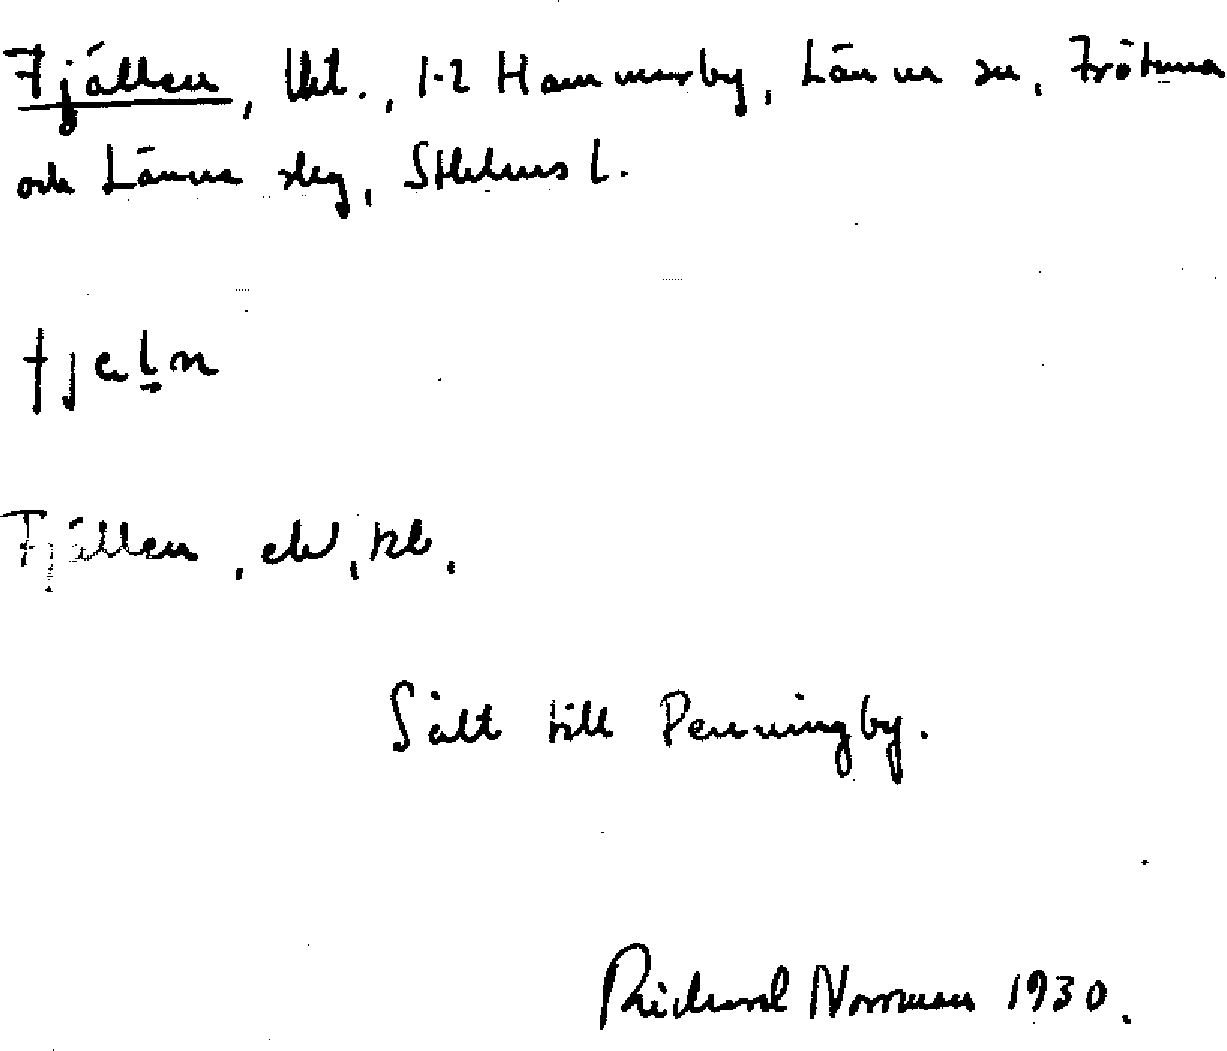 Fjällen, lht., 1-2 Hammarby, Länna sn, Frötuna
och Länna slg, Sthlms l.
fjeḻn
Fjällen, ek,
Sålt till Penningby.
Richard Norrman 1930.